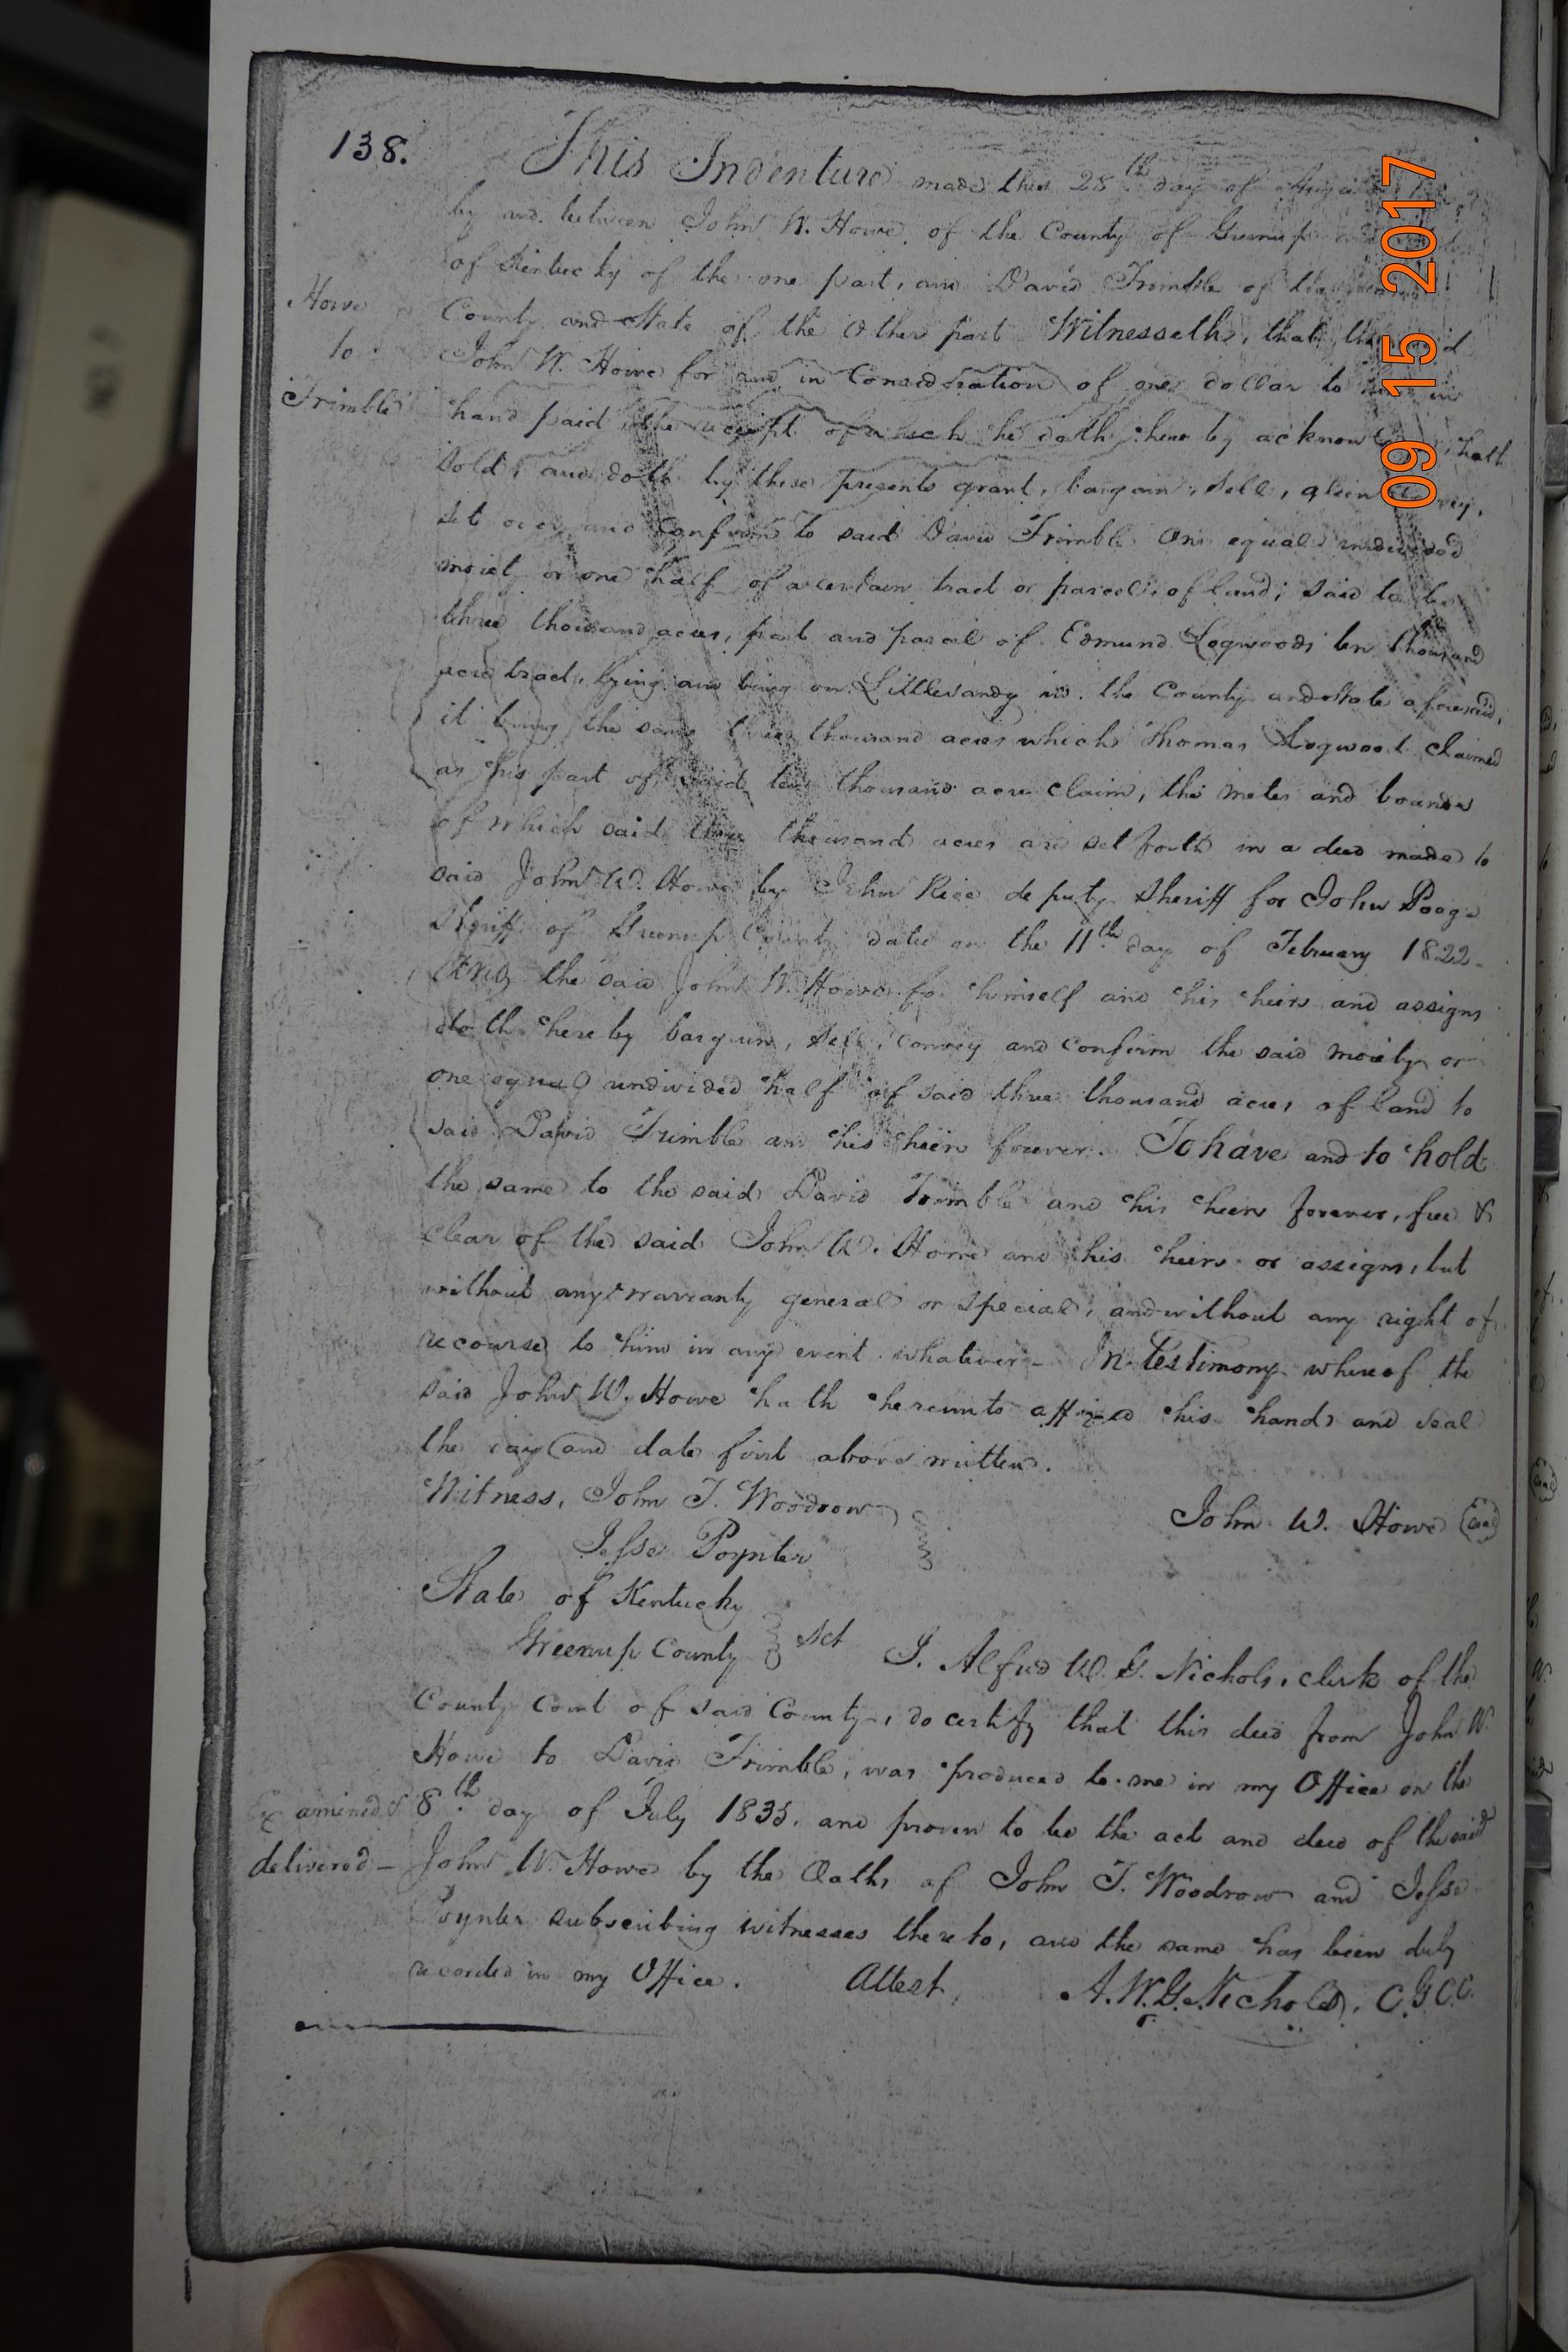 138.
This Indenture made this 28th day of August
by and between John W. Howe of the County of Greenup
of Kentucky of the one part, and David Trimble of the
Howe
to
Trimble
County and State of the Other part Witnesseth, that the said
John W. Howe for and in Consideration of one dollar to him in
hand paid, the receipt of which he doth here by acknow hath
sold, and doth by these presents grant, bargain, sell, alien
set over and confirm to said David Trimble One equal undivided
moiety or one half of a certain tract or parcel, of land; said to be
three thousand acres, part and parcel of Edmund Logwoods ten thousand
acre tract, lying and being on Little Sandy in the County and State aforesaid,
it being the same three thousand acres which Thomas Logwood claimed
as his part of said ten thousand acre claim, the metes and bounds
of which said three thousand acres are set forth in a deed made to
said John W. Howe by John Rice deputy Sheriff for John Poage
Sheriff of Greenup County date on the 11th day of February 1822-
And the said John W. Howe for himself and his heirs and assigns
doth hereby bargain, sell, convey and confirm the said moiety or
one equal undivided half of said three thousand acres of land to
said David Trimble and his heirs forever. To have and to hold
the same to the said David Trimble and his heirs forever, free &
clear of the said John W. Howe and his heirs or assigns, but
without any warranty general or special, and without any right of
recourse to him in any event whatever- In Testimony whereof the
said John W. Howe hath hereunto affixed his hand and seal
the day and date first above written.
Witness, John T. Woodrow
John W. Howe (Seal)
Jesse Poynter
State of Kentucky
Greenup County Sct I. Alfred W. G. Nichols, clerk of the
County Court of said County, do certify that this deed from John W.
Howe to David Trimble, was produced to me in my Office on the
Examined &
delivered-
8th day of July 1835, and proven to be the act and deed of the said
John W. Howe by the Oaths of John T. Woodrow and Jesse
Poynter subscribing witnesses thereto, and the same has been duly
recorded in my Office. Attest, A. W. G. Nichols, C.G.C.C.
09 15 2017